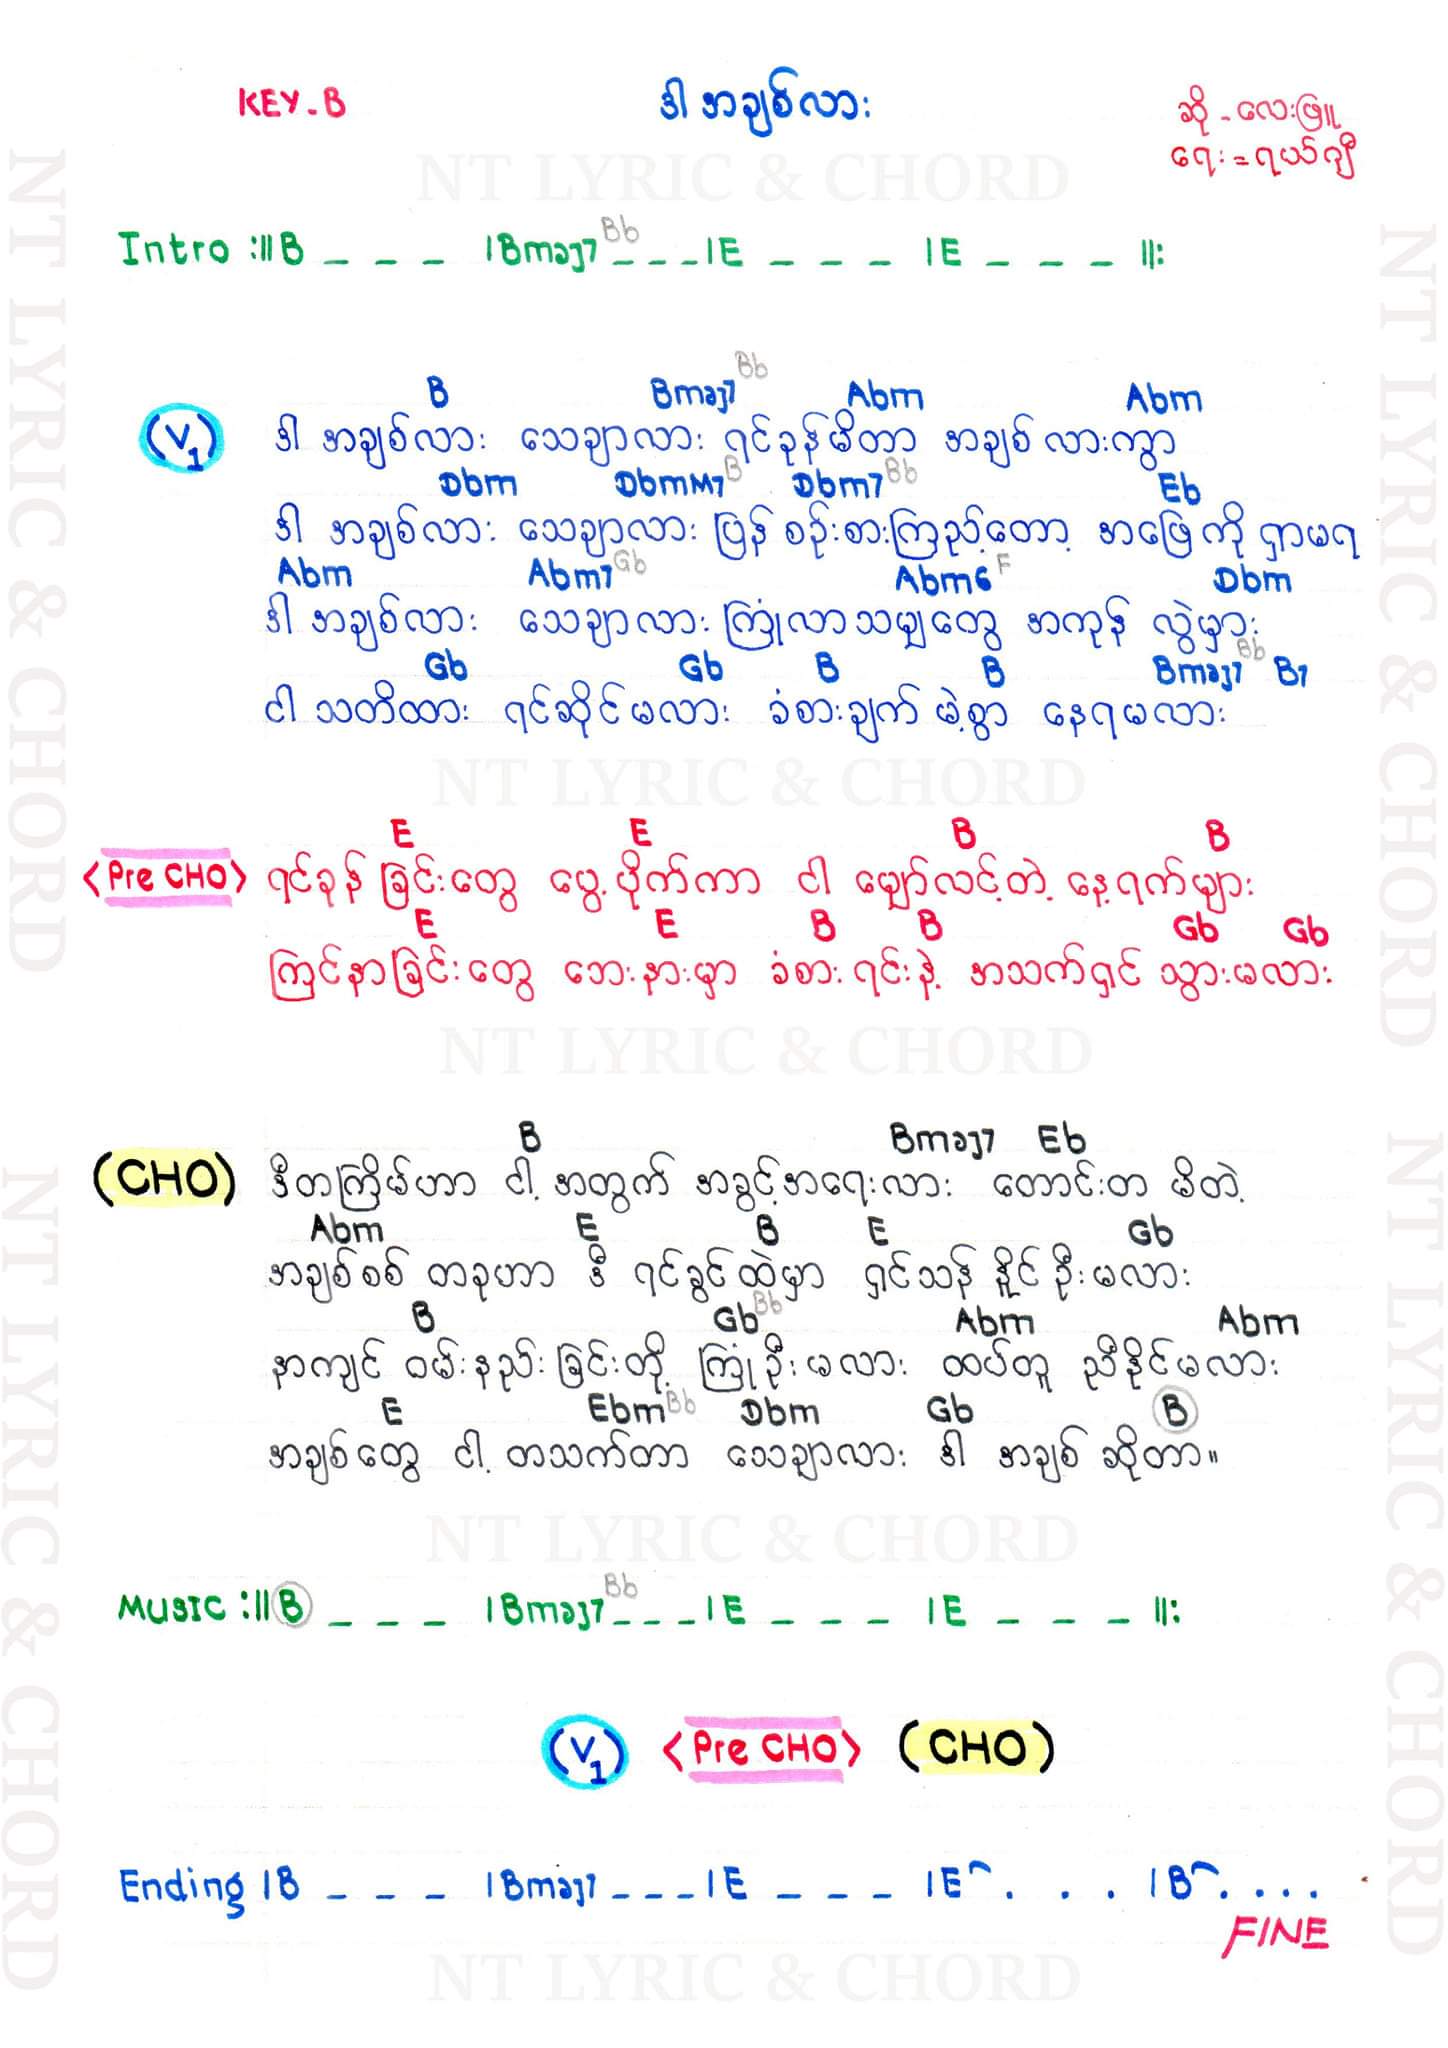 KEY-B
ဒါ အချစ်လား
ဆို - လေးဖြူ
ရေး = ရယ်ဂျီ
NT LYRIC & CHORD
Intro :||B _ _ _ |Bmaj7 Bb _ _ _ |E _ _ _ |E _ _ _ ||:
B Bmaj7 Bb Abm Abm
(V1) ဒါ အချစ်လား သေချာလား ရင်ခုန်မိတာ အချစ် လားကွာ
Dbm DbmM7 B Dbm7 Bb Eb
ဒါ အချစ်လား သေချာလား ပြန် စဉ်းစားကြည့်တော့ အဖြေကို ရှာမရ
Abm Abm7 Gb Abm6 F Dbm
ဒါ အချစ်လား သေချာလား ကြုံလာသမျှတွေ အကုန် လွဲမှား
Gb Gb B B Bmaj7 Bb B7
ငါ သတိထား ရင်ဆိုင်မလား ခံစားချက် မဲ့စွာ နေရမလား
NT LYRIC & CHORD
E E B B
<Pre CHO> ရင်ခုန် ခြင်းတွေ မွေ့ပိုက်ကာ ငါ မျှော်လင့်တဲ့ နေ့ရက်များ
E E B B Gb Gb
ကြင်နာခြင်းတွေ ဘေးနားမှာ ခံစား ရင်းနဲ့ အသက်ရှင် သွားမလား
NT LYRIC & CHORD
B Bmaj7 Eb
(CHO) ဒီတကြိမ်ဟာ ငါ့ အတွက် အခွင့်အရေးလား တောင်းတ မိတဲ့
Abm E B E Gb
အချစ်စစ် တခုဟာ ဒီ ရင်ခွင်ထဲမှာ ရှင်သန် နိူင် ဦးမလား
B Gb Bb Abm Abm
နာကျင် ဝမ်းနည်း ခြင်းတို့ ကြုံဦးမလား ထပ်တူ ညီနိုင်မလား
E Ebm Bb Dbm Gb B
အချစ်တွေ ငါ့ တသက်တာ သေချာလား ဒါ အချစ် ဆိုတာ။
NT LYRIC & CHORD
MUSIC :||B _ _ _ |Bmaj7 Bb _ _ _ |E _ _ _ |E _ _ _ ||:
(V1) <Pre CHO> (CHO)
Ending |B _ _ _ |Bmaj7 _ _ _ |E _ _ _ |E . . . |B . . . .
FINE
NT LYRIC & CHORD
NT LYRIC & CHORD
NT LYRIC & CHORD
NT LYRIC & CHORD
NT LYRIC & CHORD